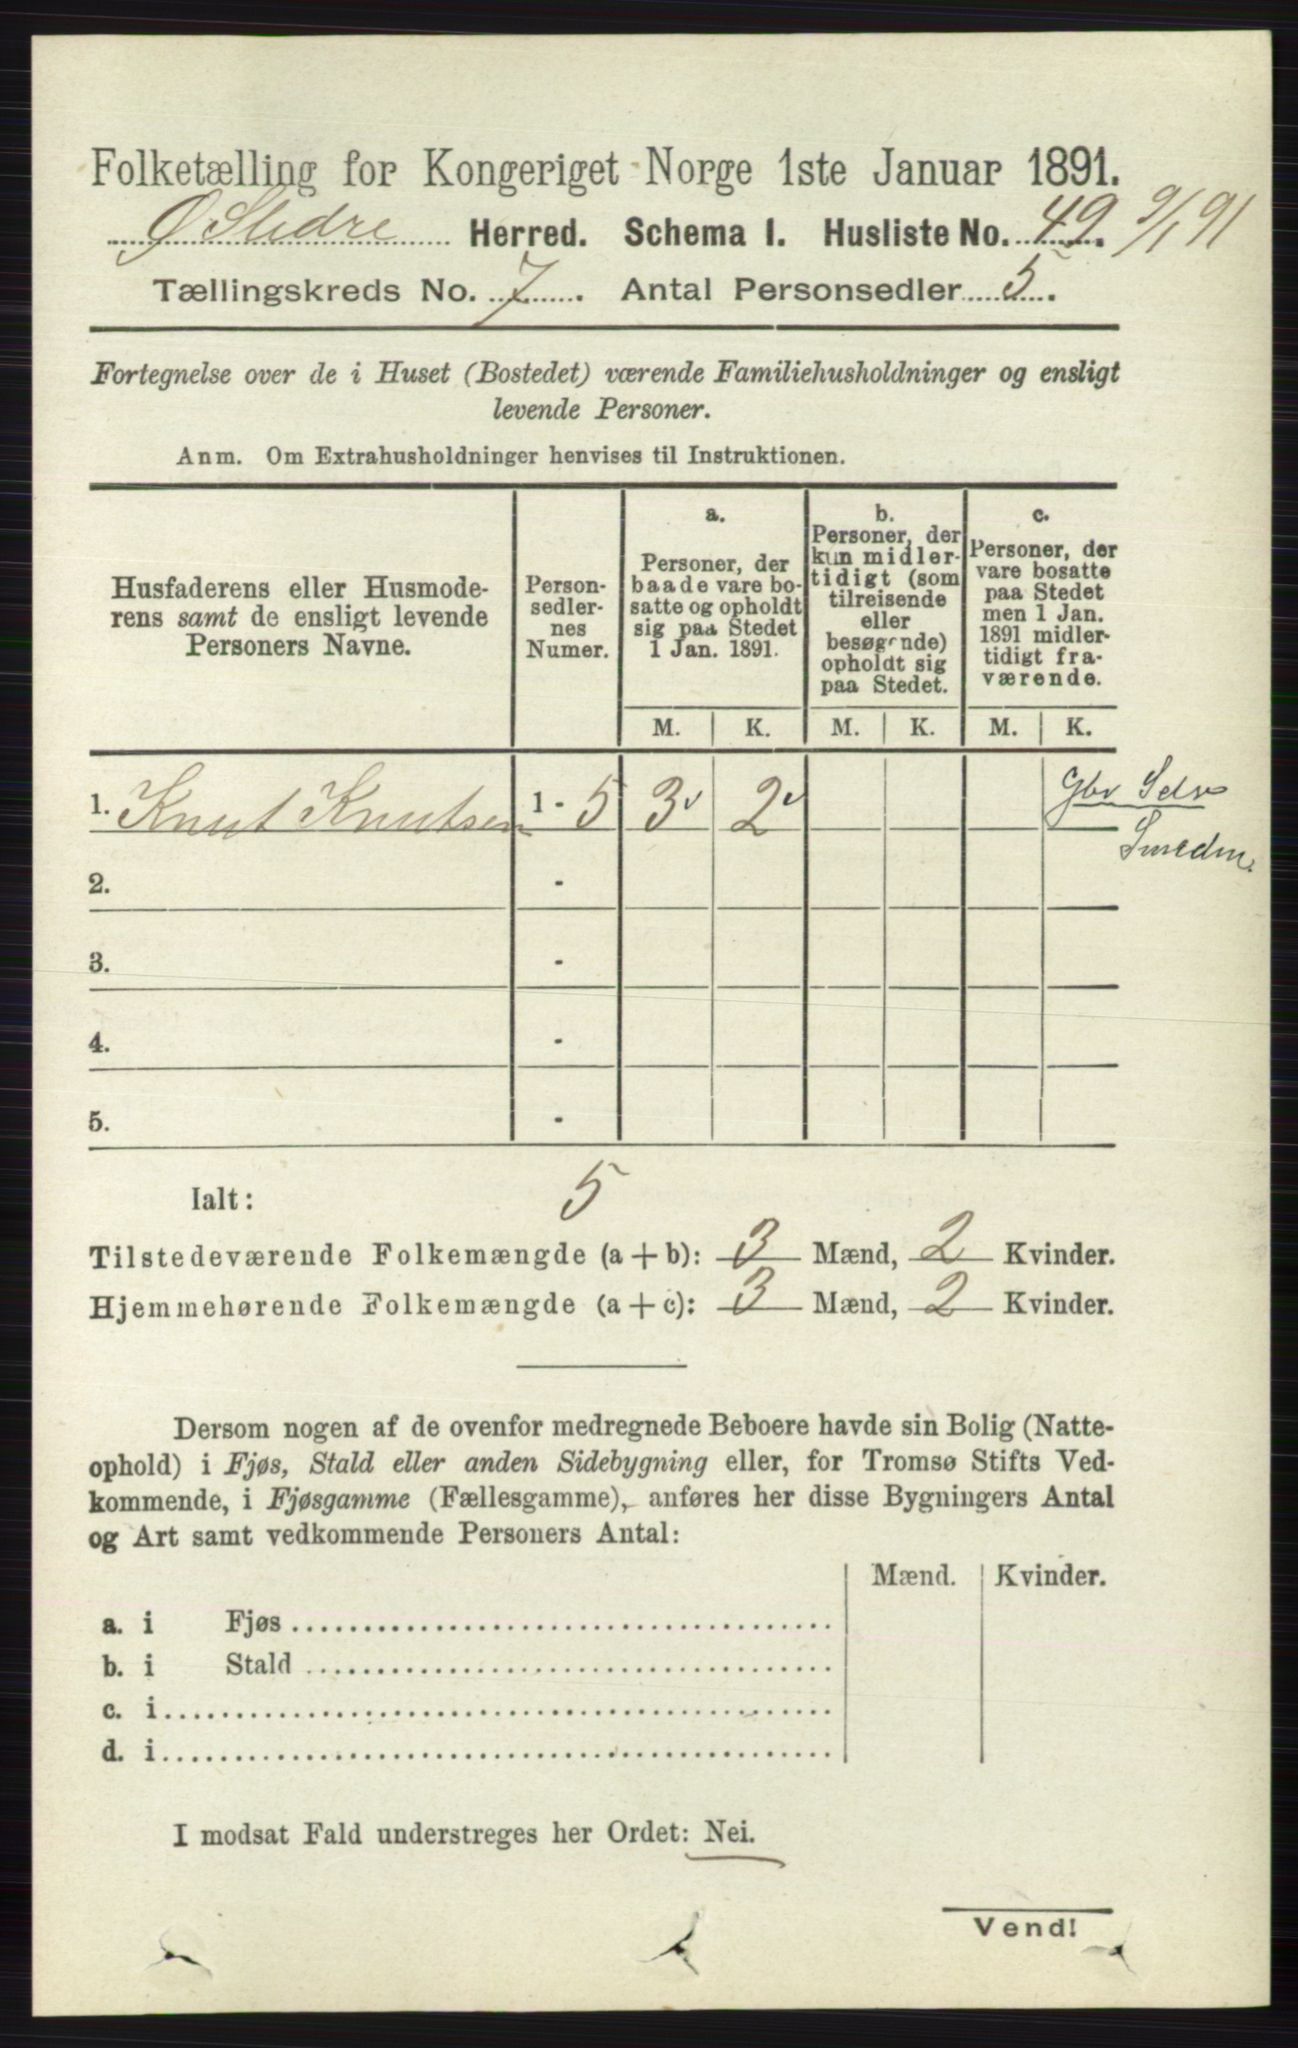 Folketælling for Kongeriget Norge 1ste Januar 1891.
Ø Slidre Herred. Schema I. Husliste No. 49. 9/1 91
Tællingskreds No. 7. Antal Personsedler 5.
Fortegnelse over de i Huset (Bostedet) værende Familiehusholdninger og ensligt
levende Personer.
Anm. Om Extrahusholdninger henvises til Instruktionen.
Husfaderens eller Husmode-
rens samt de ensligt levende
Personers Navne.
Person-
sedler-
nes
Numer.
a.
Personer, der
baade vare bo-
satte og opholdt
sig paa Stedet
1 Jan. 1891.
b.
Personer, der
kun midler-
tidigt (som
tilreisende
eller
besøgende)
opholdt sig
paa Stedet.
c.
Personer, der
vare bosatte
paa Stedet
men 1 Jan.
1891 midler-
tidigt fra-
værende.
M. K. M. K. M. K.
1. Knut Knutsen 1 - 5 3 2 Gbr Selv
Smedm.
2. -
3. -
4. -
5. -
Ialt: 5
Tilstedeværende Folkemængde (a + b): 3 Mænd, 2 Kvinder.
Hjemmehørende Folkemængde (a + c): 3 Mænd, 2 Kvinder.
Dersom nogen af de ovenfor medregnede Beboere havde sin Bolig (Natte-
ophold) i Fjøs, Stald eller anden Sidebygning eller, for Tromsø Stifts Ved-
kommende, i Fjøsgamme (Fællesgamme), anføres her disse Bygningers Antal
og Art samt vedkommende Personers Antal:
Mænd. Kvinder.
a. i Fjøs
b. i Stald
c. i
d. i
I modsat Fald understreges her Ordet: Nei.
Vend!